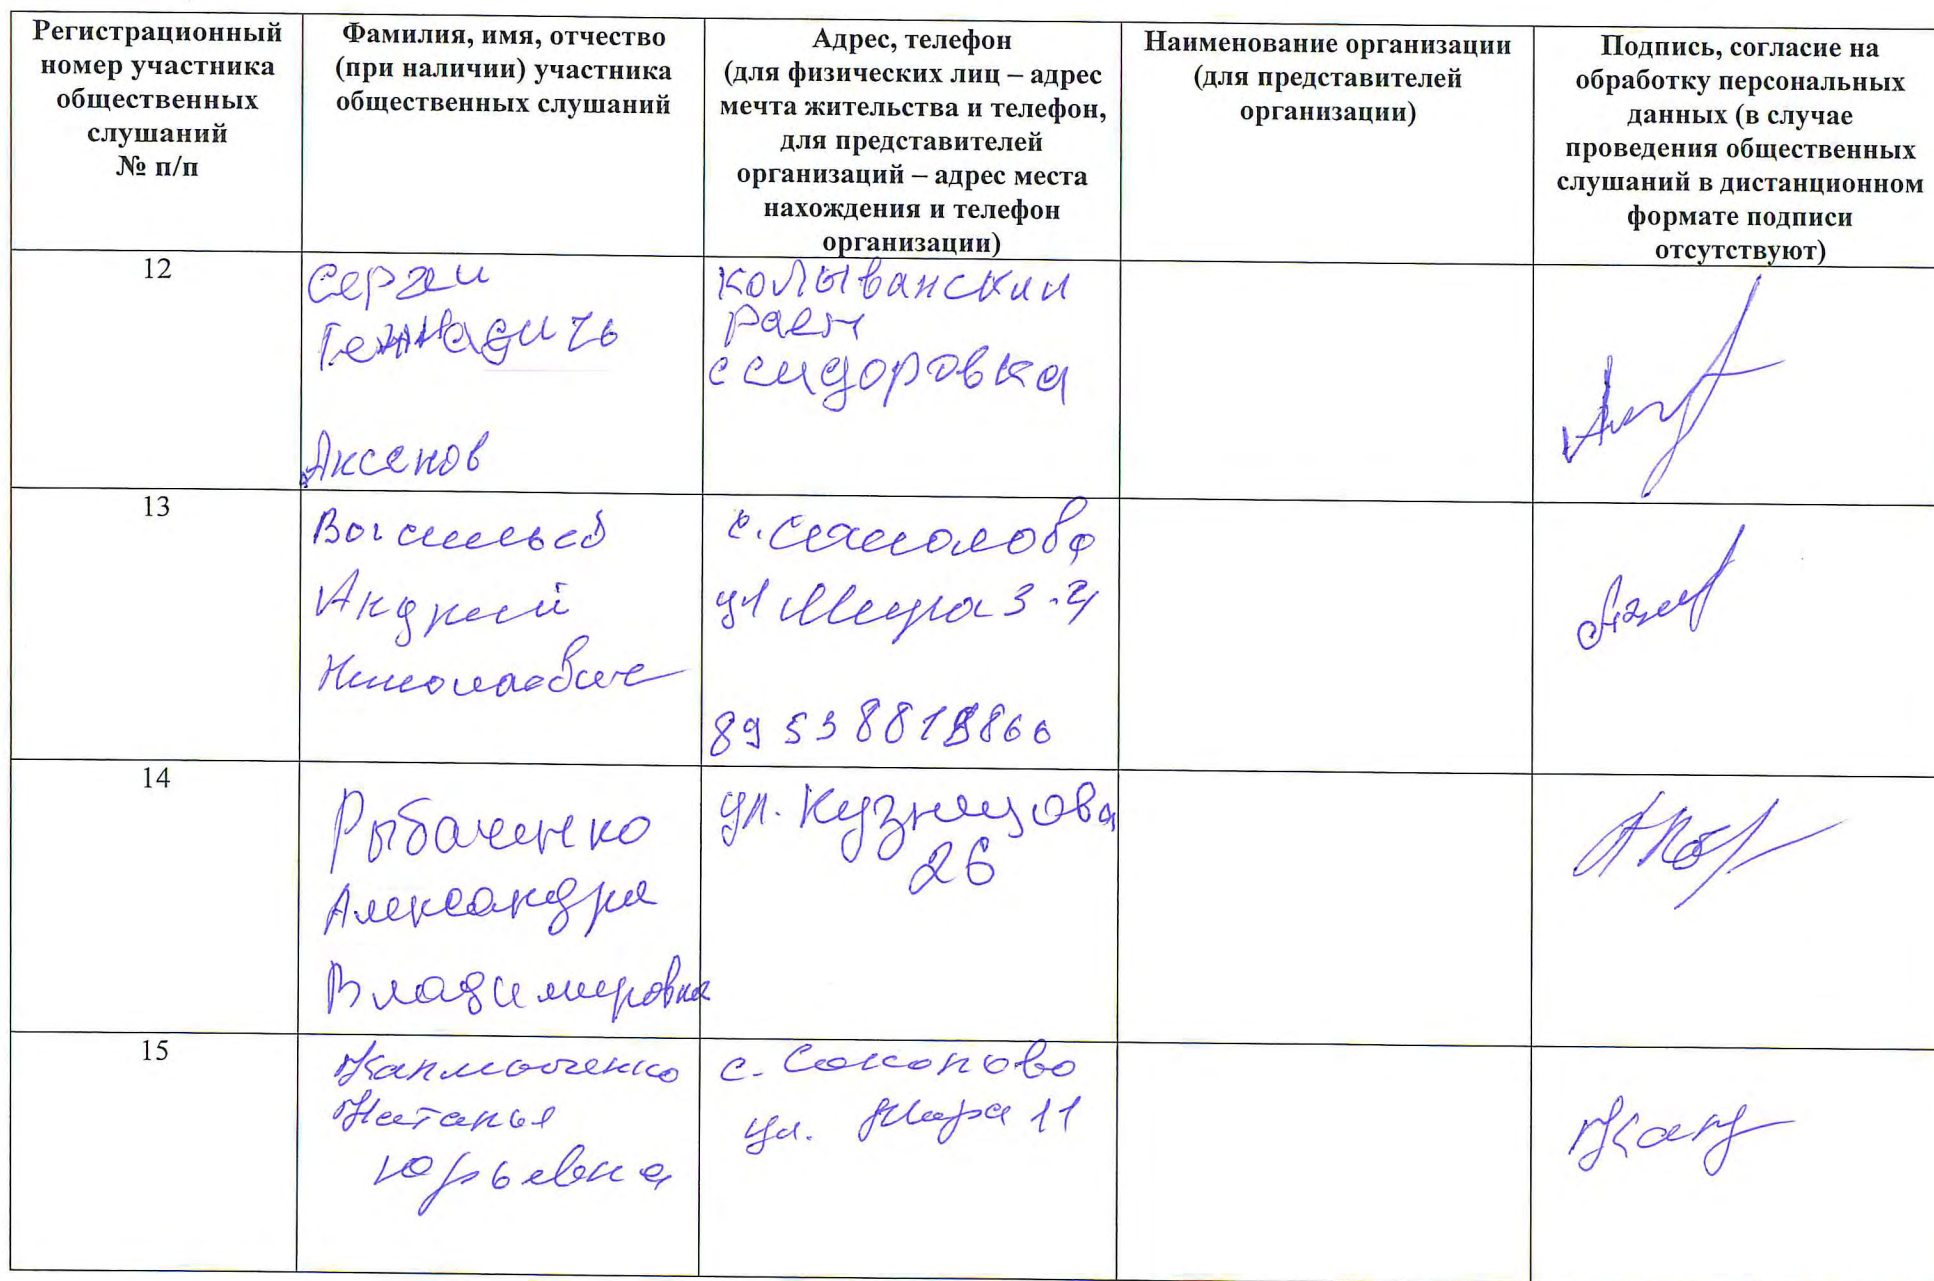 Регистрационный
номер участника
общественных
слушаний
№ п/п
Фамилия, имя, отчество
(при наличии) участника
общественных слушаний
Адрес, телефон
(для физических лиц – адрес
мечта жительства и телефон,
для представителей
организаций – адрес места
нахождения и телефон
организации)
Наименование организации
(для представителей
организации)
Подпись, согласие на
обработку персональных
данных (в случае
проведения общественных
слушаний в дистанционном
формате подписи
отсутствуют)
12
Сергей
Генадичь
Аксенов
Колыванский
раен
с сидоровка
13
Васильев
Андрей
Николаевич
с.
ул Мира 3-
14
Рыбаченко
Александра
Владимировна
ул. Кузнецова
26
15
Наталья
Юрьевна
с. Соколово
ул. Мира 11